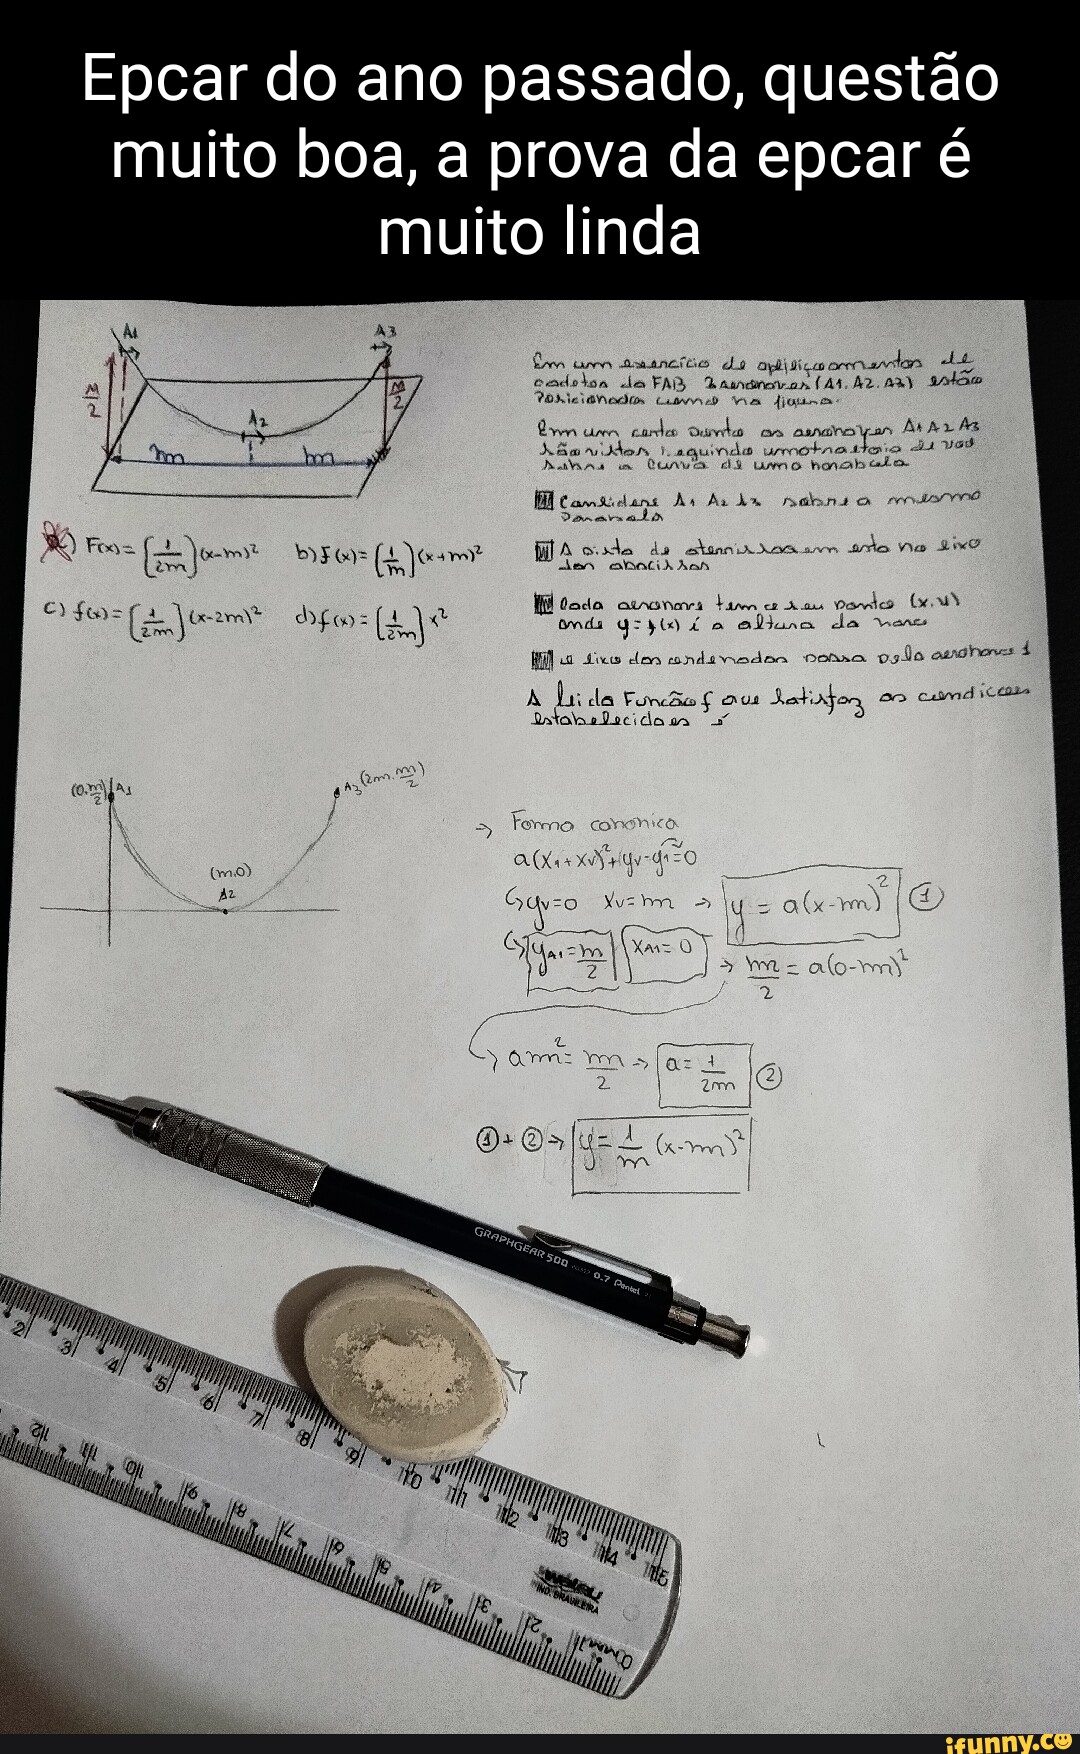 Epcar do ano passado, questão
muito boa, a prova da epcar é
muito linda
A1
A3
A2
m/2
m/2
m
m
a) F(x) = [1/2m](x-m)²
b) f(x) = [1/m](x+m)²
c) f(x) = [1/2m](x-2m)²
d) f(x) = [1/2m]x²
Em um exercício de
cadetes da FAB 3 aeronaves (A1, A2, A3) estão
Posicionadas como na figura.
Em um certo ponto as aeronaves A1 A2 A3
são vistas
sobre a curva de uma parabola
Considere A1 A2 A3 sobre a mesma
Parabola
A pista de aterrissagem esta no eixo
das abscissas
Cada aeronave tem seu ponto (x,y)
onde y = f(x) é a altura da nave
o eixo das ordenadas passa pela aeronave 1
A lei da Função f que satisfaz as condicoes
estabelecidas é
(0, m/2) A1
A3 (2m, m/2)
(m,0)
A2
→ Forma canonica
a(x1+xv)²+yv-y1=0
↳ yv=0 xv=m → y = a(x-m)² ①
↳ yA1 = m/2 xA1 = 0 → m/2 = a(0-m)²
↳ am² = m/2 → a = 1/2m ②
① + ② → y = 1/m (x-m)²
GRAPHGEAR 500 0.7 Pentel
2 3 4 5 6 7 8 9 10 11 12 13 14 15
12 11 10 9 8 7 6 5 4 3 2 1 0
mm
IND. BRASILEIRA
ifunny.co